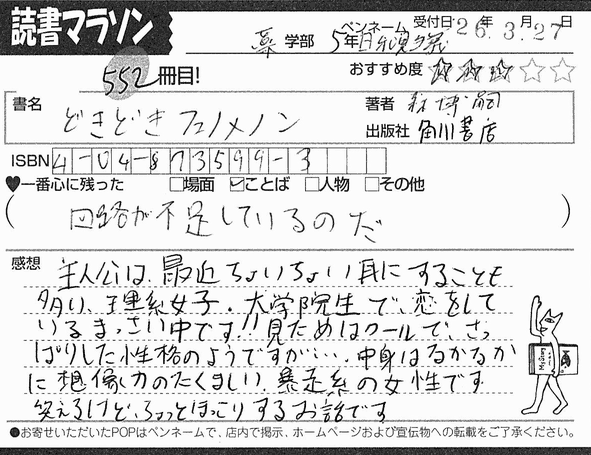 読書マラソン
薬 学部 5年 ペンネーム 受付日 26年 3月 27日
552冊目! おすすめ度
書名 どきどきフェノメノン 著者 森博嗣
出版社 角川書店
ISBN 4-04-873599-3
♥一番心に残った □場面 ☑ことば □人物 □その他
(回路が不足しているのだ)
感想 主人公は、最近ちょいちょい耳にすることも
多い、理系女子。大学院生で、恋をして
いるまっさい中です!!見ためはクールで、さっ
ぱりした性格のようですが…、中身はなかなか
に想像力のたくましい、暴走系の女性です
笑えるけど、ふっとほっこりするお話です
●お寄せいただいたPOPはペンネームで、店内で掲示、ホームページおよび宣伝物への転載をご了承ください。